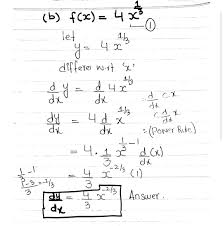 (b) f(x) = 4 x^{1/3} ①
let
y = 4 x^{1/3}
differ w.r.t 'x'
d/dx y = d/dx 4 x^{1/3}
d/dx c x
c d/dx x
dy/dx = 4 d/dx x^{1/3}
=(Power Rule)
= 4 · 1/3 x^{1/3 - 1} d/dx (x)
1/3 - 1
1-3/3 = -2/3
= 4/3 x^{-2/3} (1)
dy/dx = 4/3 x^{-2/3} Answer.